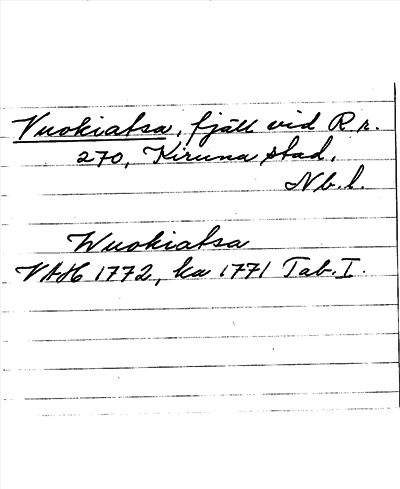 Vuokiatsa, fjäll vid R r.
270, Kiruna stad,
Nb. l.
Wuokiatsa
VAH 1772, ka 1771 Tab. I.